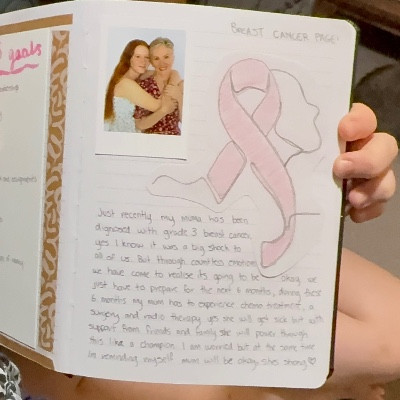 goals
BREAST CANCER PAGE!
Just recently my mama has been
diagnosed with grade 3 breast cancer,
yes I know it was a big shock to
all of us. But through countless
we have come to realise its going to be okay we
just have to prepare for the next 6 months, during these
6 months my mum has to experience chemo treatment, a
surgery and radio therapy yes she will get sick but with
support from friends and family she will power through
this like a champion. I am worried but at the same time
im reminding myself mum will be okay, shes strong♡